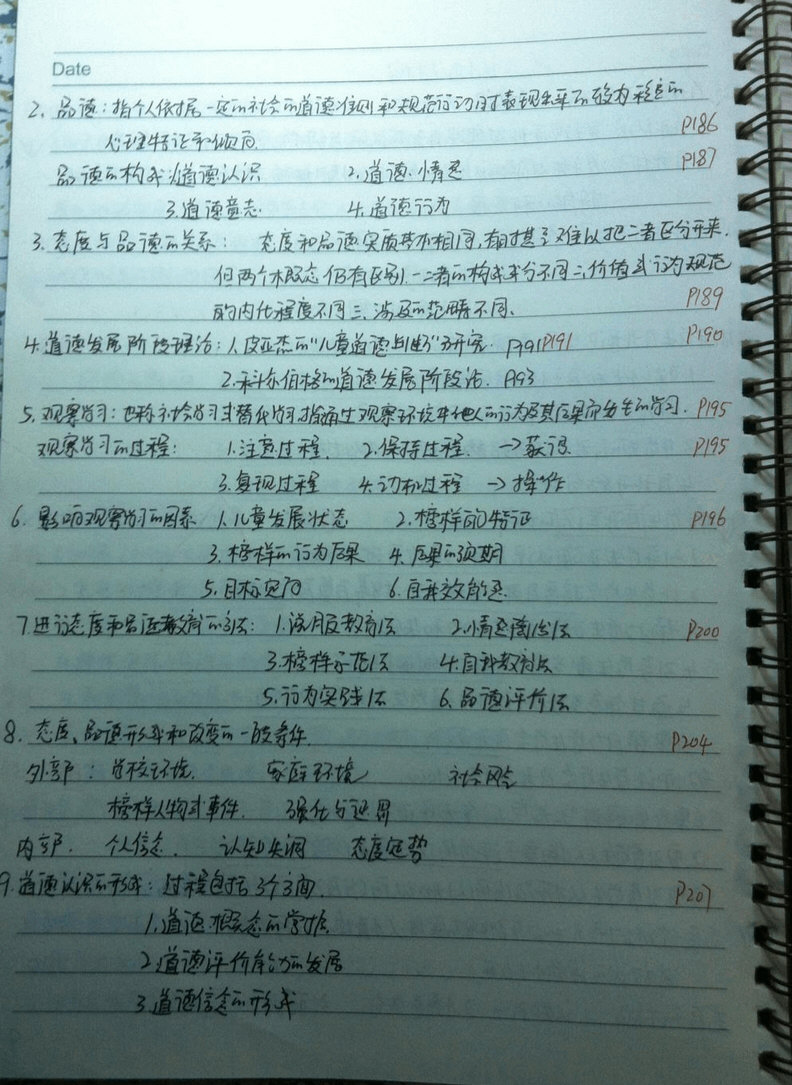 Date
2. 品德：指个人依据一定的社会的道德准则和规范行动时表现出来的较为稳定的
心理特征和倾向. P186
品德的构成：1.道德认识 2.道德情感 P187
3.道德意志 4.道德行为
3. 态度与品德的关系： 态度和品德实质基本相同，有时甚至难以把二者区分开来.
但两个概念仍有区别.一二者的构成成分不同二、价值或行为规范
的内化程度不同三.涉及的范畴不同. P189
4.道德发展阶段理论：1.皮亚杰的"儿童道德判断"研究. P191 P190
2.科尔伯格的道德发展阶段论. P193
5. 观察学习：也称社会学习或替代学习指通过观察环境中他人的行为及其后果而发生的学习. P195
观察学习的过程： 1.注意过程. 2.保持过程. →获得 P195
3.复现过程 4.动机过程 →操作
6. 影响观察学习的因素 1.儿童发展状态 2.榜样的特征 P196
3.榜样的行为后果 4.后果的预期
5.目标定向 6.自我效能感
7.进行态度和品德教育的方法： 1.说服教育法 2.情感陶冶法 P200
3.榜样示范法 4.自我教育法
5.行为实践法 6.品德评价法
8. 态度、品德形成和改变的一般条件. P204
外部： 学校环境. 家庭环境 社会风气
榜样人物或事件. 强化与惩罚
内部. 个人信念. 认知失调 态度定势
9.道德认识的形成：过程包括3个方面. P207
1.道德概念的掌握.
2.道德评价能力的发展
3.道德信念的形成